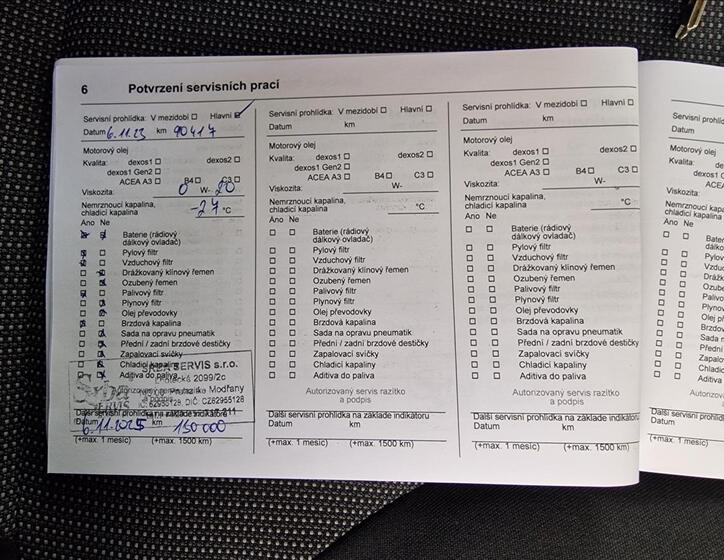 6 Potvrzení servisních prací
Servisní prohlídka: V mezidobí ☐ Hlavní ☑
Datum 6.11.23 km 90417
Motorový olej
Kvalita: dexos1 ☐ dexos2 ☐
dexos1 Gen2 ☐
ACEA A3 ☐ B4 ☐ C3 ☐
Viskozita: 0 W- 20
Nemrznoucí kapalina,
chladicí kapalina -27 °C
Ano Ne
Baterie (rádiový
dálkový ovladač)
Pylový filtr
Vzduchový filtr
Drážkovaný klínový řemen
Ozubený řemen
Palivový filtr
Plynový filtr
Olej převodovky
Brzdová kapalina
Sada na opravu pneumatik
Přední / zadní brzdové destičky
Zapalovací svíčky
Chladicí kapaliny
Aditiva do paliva
SERVIS s.r.o.
2099/2c
Modřany
62955128, DIČ: CZ62955128
Další servisní prohlídka na základě indikátoru
Datum km
6.11.2025 150 000
(+max. 1 měsíc) (+max. 1500 km)
Servisní prohlídka: V mezidobí ☐ Hlavní ☐
Datum km
Motorový olej
Kvalita: dexos1 ☐ dexos2 ☐
dexos1 Gen2 ☐
ACEA A3 ☐ B4 ☐ C3 ☐
Viskozita: W-
Nemrznoucí kapalina,
chladicí kapalina °C
Ano Ne
☐ ☐ Baterie (rádiový
dálkový ovladač)
☐ ☐ Pylový filtr
☐ ☐ Vzduchový filtr
☐ ☐ Drážkovaný klínový řemen
☐ ☐ Ozubený řemen
☐ ☐ Palivový filtr
☐ ☐ Plynový filtr
☐ ☐ Olej převodovky
☐ ☐ Brzdová kapalina
☐ ☐ Sada na opravu pneumatik
☐ ☐ Přední / zadní brzdové destičky
☐ ☐ Zapalovací svíčky
☐ ☐ Chladicí kapaliny
☐ ☐ Aditiva do paliva
Autorizovaný servis razítko
a podpis
Další servisní prohlídka na základě indikátoru
Datum km
(+max. 1 měsíc) (+max. 1500 km)
Servisní prohlídka: V mezidobí ☐ Hlavní ☐
Datum km
Motorový olej
Kvalita: dexos1 ☐ dexos2 ☐
dexos1 Gen2 ☐
ACEA A3 ☐ B4 ☐ C3 ☐
Viskozita: W-
Nemrznoucí kapalina,
chladicí kapalina °C
Ano Ne
☐ ☐ Baterie (rádiový
dálkový ovladač)
☐ ☐ Pylový filtr
☐ ☐ Vzduchový filtr
☐ ☐ Drážkovaný klínový řemen
☐ ☐ Ozubený řemen
☐ ☐ Palivový filtr
☐ ☐ Plynový filtr
☐ ☐ Olej převodovky
☐ ☐ Brzdová kapalina
☐ ☐ Sada na opravu pneumatik
☐ ☐ Přední / zadní brzdové destičky
☐ ☐ Zapalovací svíčky
☐ ☐ Chladicí kapaliny
☐ ☐ Aditiva do paliva
Autorizovaný servis razítko
a podpis
Další servisní prohlídka na základě indikátoru
Datum km
(+max. 1 měsíc) (+max. 1500 km)
Servisní pro
Datum
Motorový ole
Kvalita:
Viskozita:
Nemrznoucí
chladicí kapa
Ano Ne